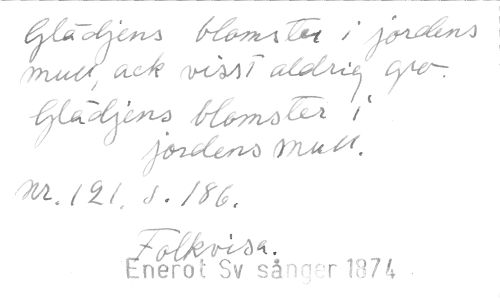 Glädjens blomster i jordens
mull, ack visst aldrig gro.
Glädjens blomster i
jordens mull.
nr. 121. s. 186.
Folkvisa.
Enerot Sv sånger 1874